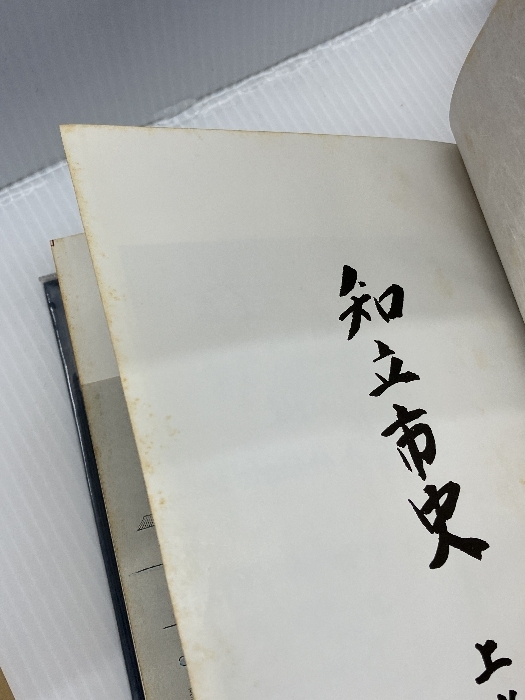 知立市史
上